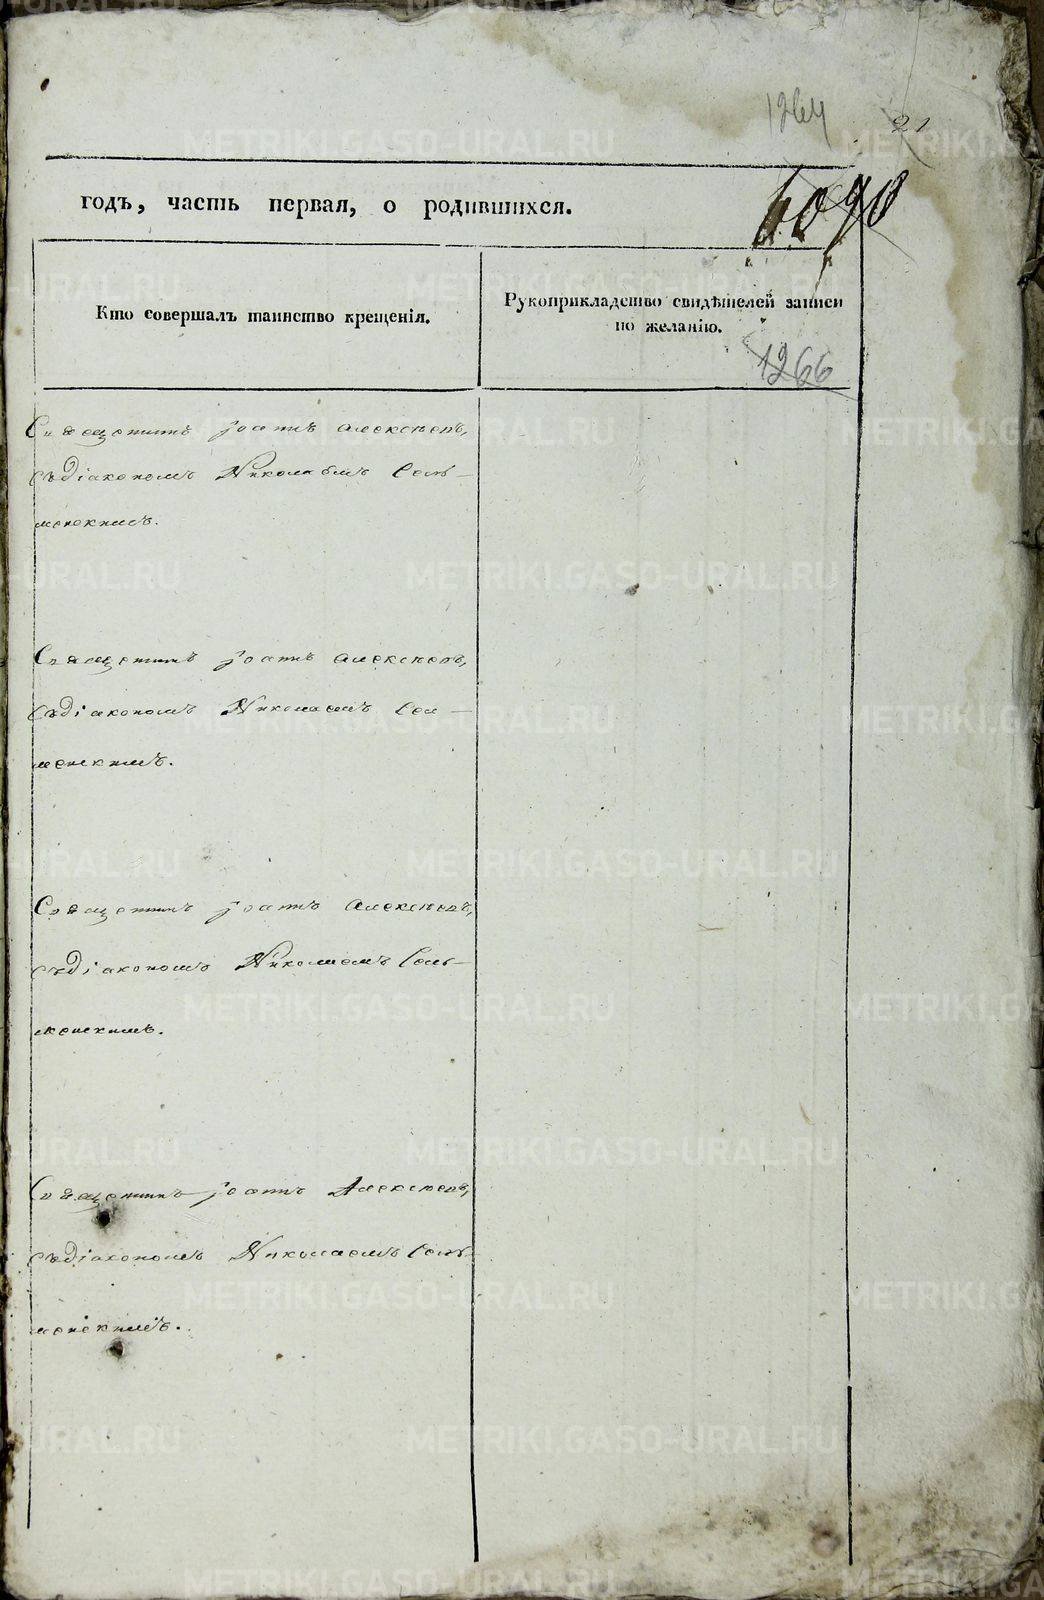 1264
21
годъ, часть первая, о родившихся.
4090
Кто совершалъ таинство крещенія.
Рукоприкладство свидѣтелей записи
по желанію.
1266
Священникъ Іоаннъ Алексѣевъ,
съ діакономъ Николаемъ
Священникъ Іоаннъ Алексѣевъ,
съ діакономъ Николаемъ
Священникъ Іоаннъ Алексѣевъ,
съ діакономъ Николаемъ
Священникъ Іоаннъ Алексѣевъ,
съ діакономъ Николаемъ
METRIKI.GASO-URAL.RU